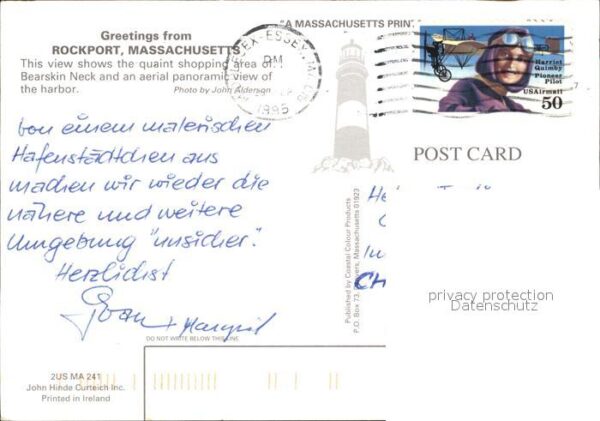 Greetings from
ROCKPORT, MASSACHUSETTS
This view shows the quaint shopping area on
Bearskin Neck and an aerial panoramic view of
the harbor.
Photo by John Alderson
"A MASSACHUSETTS PRINT
MIDDLESEX-ESSEX, MA
PM
1995
Harriet
Quimby
Pioneer
Pilot
USAirmail
50
POST CARD
Von einem malerischen
Hafenstädtchen aus
machen wir wieder die
nähere und weitere
Umgebung "unsicher".
Herzlichst
+ Margrit
Published by Coastal Colour Products
P.O. Box 73, Danvers, Massachusetts 01923
CH
privacy protection
Datenschutz
DO NOT WRITE BELOW THIS LINE.
2US MA 241
John Hinde Curteich Inc.
Printed in Ireland